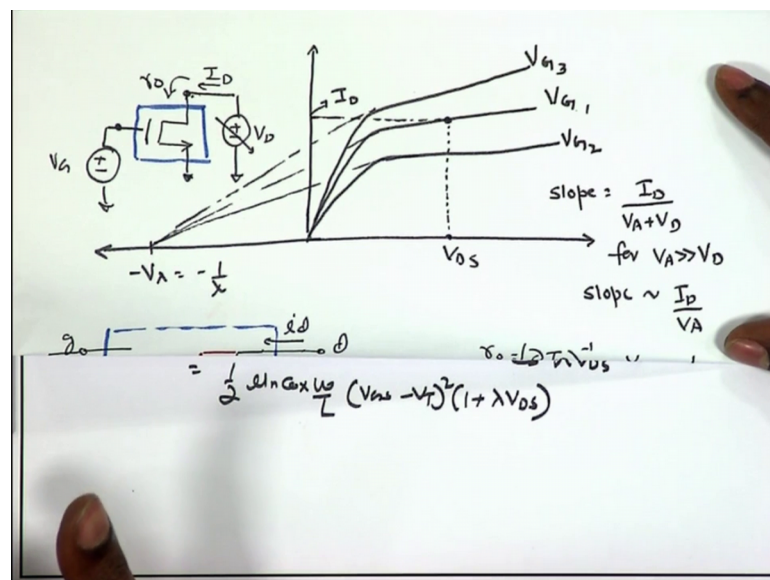 r0 I_D
I_D
V_G3
V_G1
V_G2
V_G
V_D
slope = I_D / (V_A + V_D)
for V_A >> V_D
slope ~ I_D / V_A
-V_A = -1/λ
V_DS
g id d
r0 =
= 1/2 μn Cox W/L (V_GS - V_T)^2 (1 + λ V_DS)